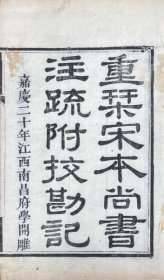 重栞宋本尚書
注疏附挍勘記
嘉慶二十年江西南昌府學開雕